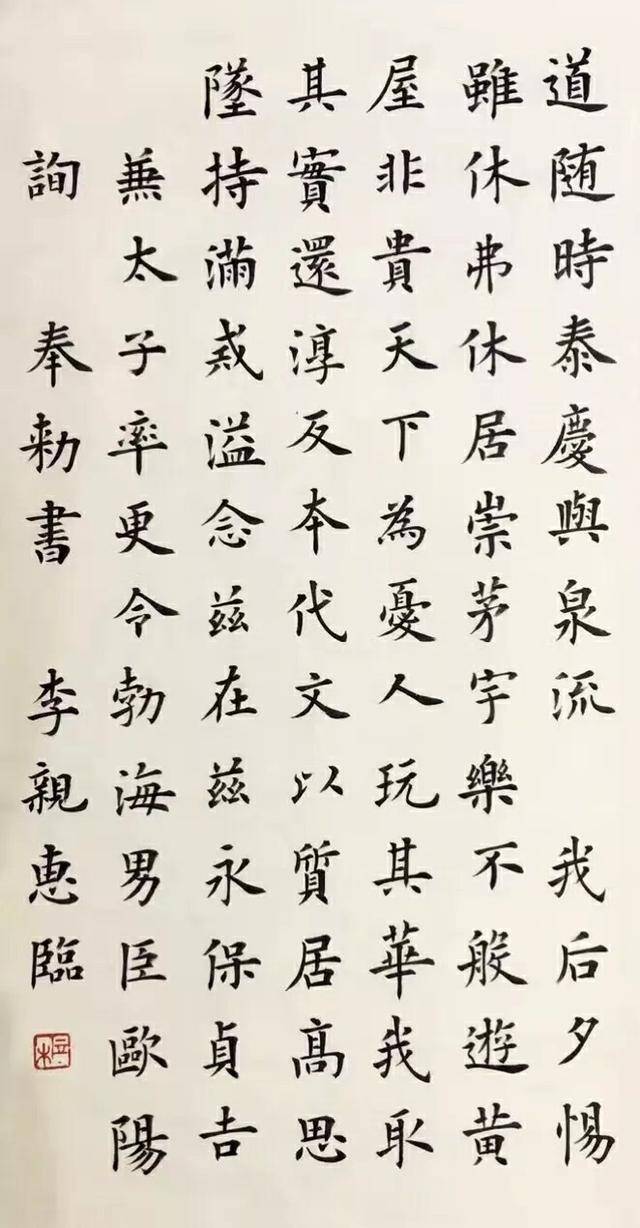 道随時泰慶與泉流 我后夕惕
雖休弗休居崇茅宇樂不般遊黄
屋非貴天下為憂人玩其華我取
其實還淳反本代文以質居高思
墜持滿戒溢念兹在兹永保貞吉
兼太子率更令勃海男臣歐陽
詢 奉勅書 李親惠臨